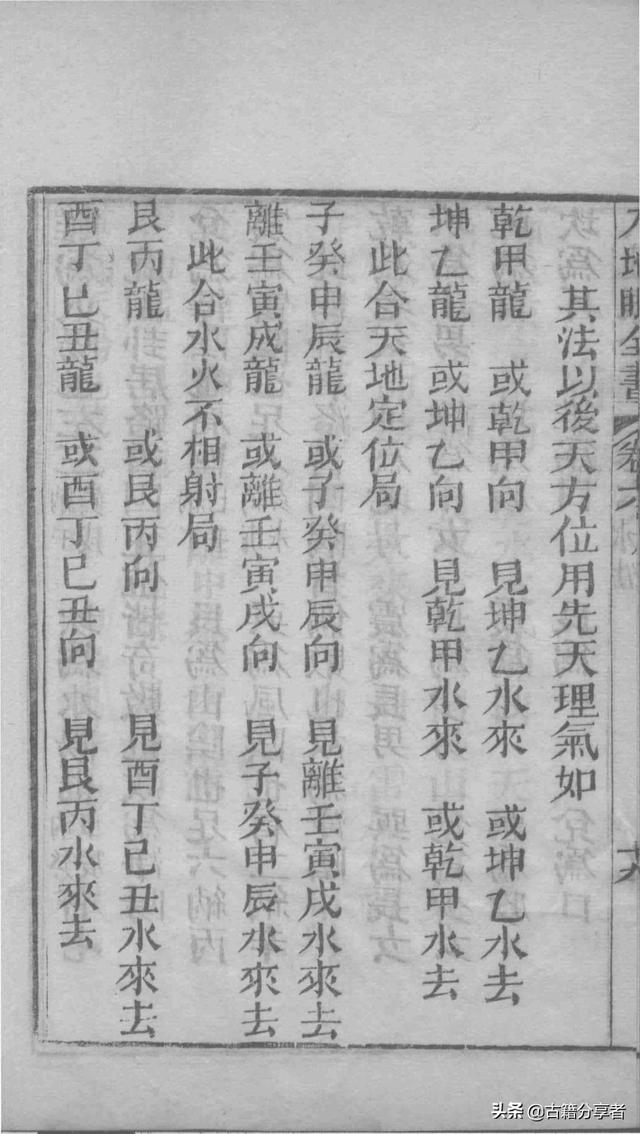 地眼全書 卷六 十八
其法以後天方位用先天理氣如
乾甲龍 或乾甲向 見坤乙水來 或坤乙水去
坤乙龍 或坤乙向 見乾甲水來 或乾甲水去
此合天地定位局
子癸申辰龍 或子癸申辰向 見離壬寅戌水來去
離壬寅戌龍 或離壬寅戌向 見子癸申辰水來去
此合水火不相射局
艮丙龍 或艮丙向 見酉丁巳丑水來去
酉丁巳丑龍 或酉丁巳丑向 見艮丙水來去
头条 @古籍分享者